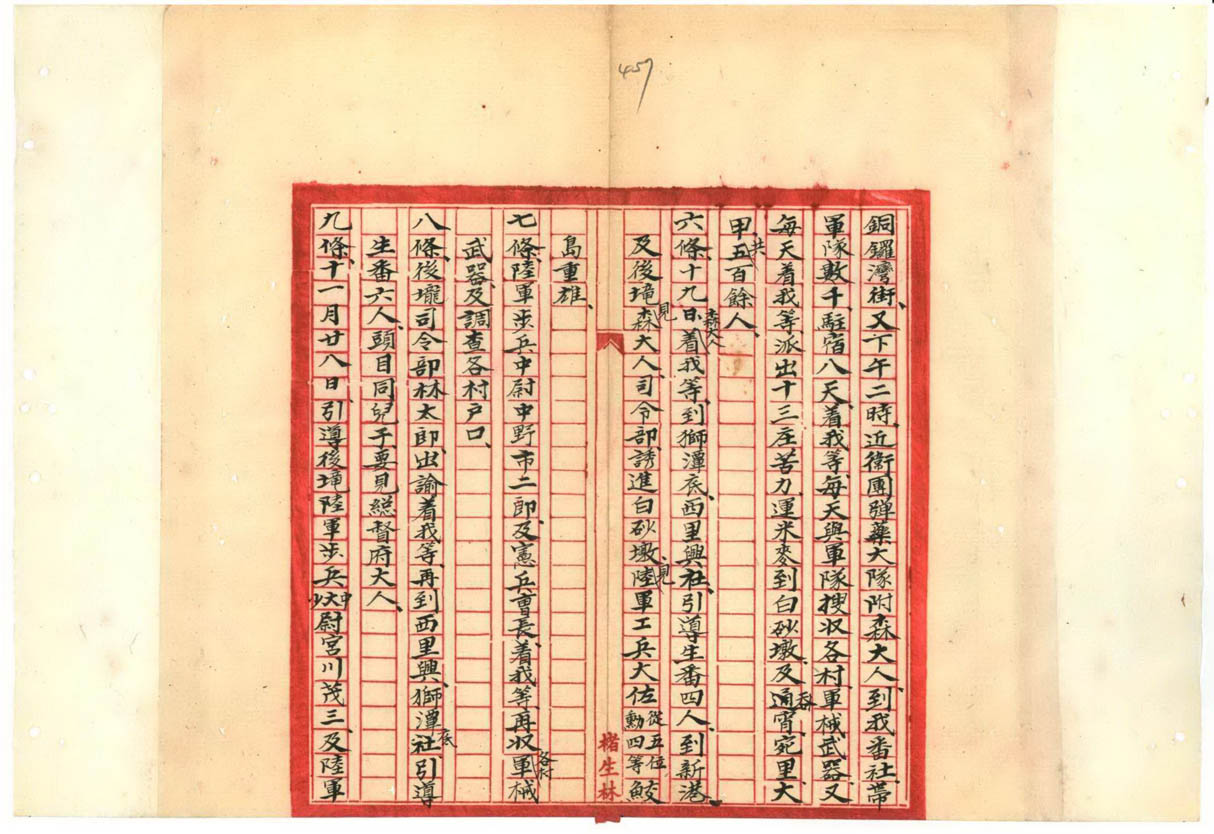 457
銅鑼灣街、又下午二時、近衛團彈藥大隊附森大人、到我番社、帶
軍隊數千、駐宿八天、着我等、每天與軍隊搜收各村軍械武器、又
每天着我等、派出十三庄苦力、運米麥到白砂墩、及通宵、苑里、大
甲、共五百餘人、
六條、十九日、森大人着我等、到獅潭底、西里興社、引導生番四人、到新港、
及後壠、見森大人、司令部、誘進白砂墩、見陸軍工兵大佐從五位勳四等鮫
島重雄、
楮生林
七條、陸軍步兵中尉中野市二郎、及憲兵曹長、着我等、再收各村軍械
武器、及調查各村戶口、
八條、後壠司令部林太郎、出諭着我等、再到西里興、獅潭底社、引導
生番六人、頭目同兒子、要見総督府大人、
九條、十一月廿八日、引導後壠陸軍步兵中尉宮川茂三、及陸軍